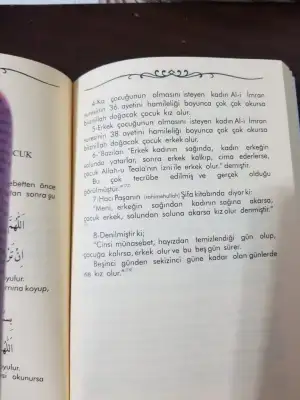 CUK
ebetten önce
tan sonra şu
اللَّهُمَّ
yulur.
rnına koyup,
oyulur.
si okunursa
4-Kız çocuğunun olmasını isteyen kadın Al-i İmran
suresinin 36 ayetini hamileliği boyunca çok çok okursa
biiznillah doğacak çocuk kız olur.
5-Erkek çocuğunun olmasını isteyen kadın Al-i İmran
suresinin 38 ayetini hamileliği boyunca çok çok okursa
biiznillah doğacak çocuk erkek olur.
6-"Bazıları "Erkek kadının sağında, kadın erkeğin
solunda yatarlar, sonra erkek kalkıp, cima ederlerse,
çocuk Allah-u Teala'nın izni ile erkek olur." demiştir.
Bu çok tecrübe edilmiş ve gerçek olduğu
görülmüştür."
7-Hacı Paşanın (rahimehullah) Şifa kitabında diyor ki:
"Meni, erkeğin sağından kadının sağına akarsa,
çocuk erkek, solundan soluna akarsa kız olur denmiştir."
8-Denilmiştir ki;
"Cinsi münasebet, hayızdan temizlendiği gün olup,
çocuğa kalırsa, erkek olur ve bu beş gün sürer.
Beşinci günden sekizinci güne kadar olan günlerde
ise kız olur."